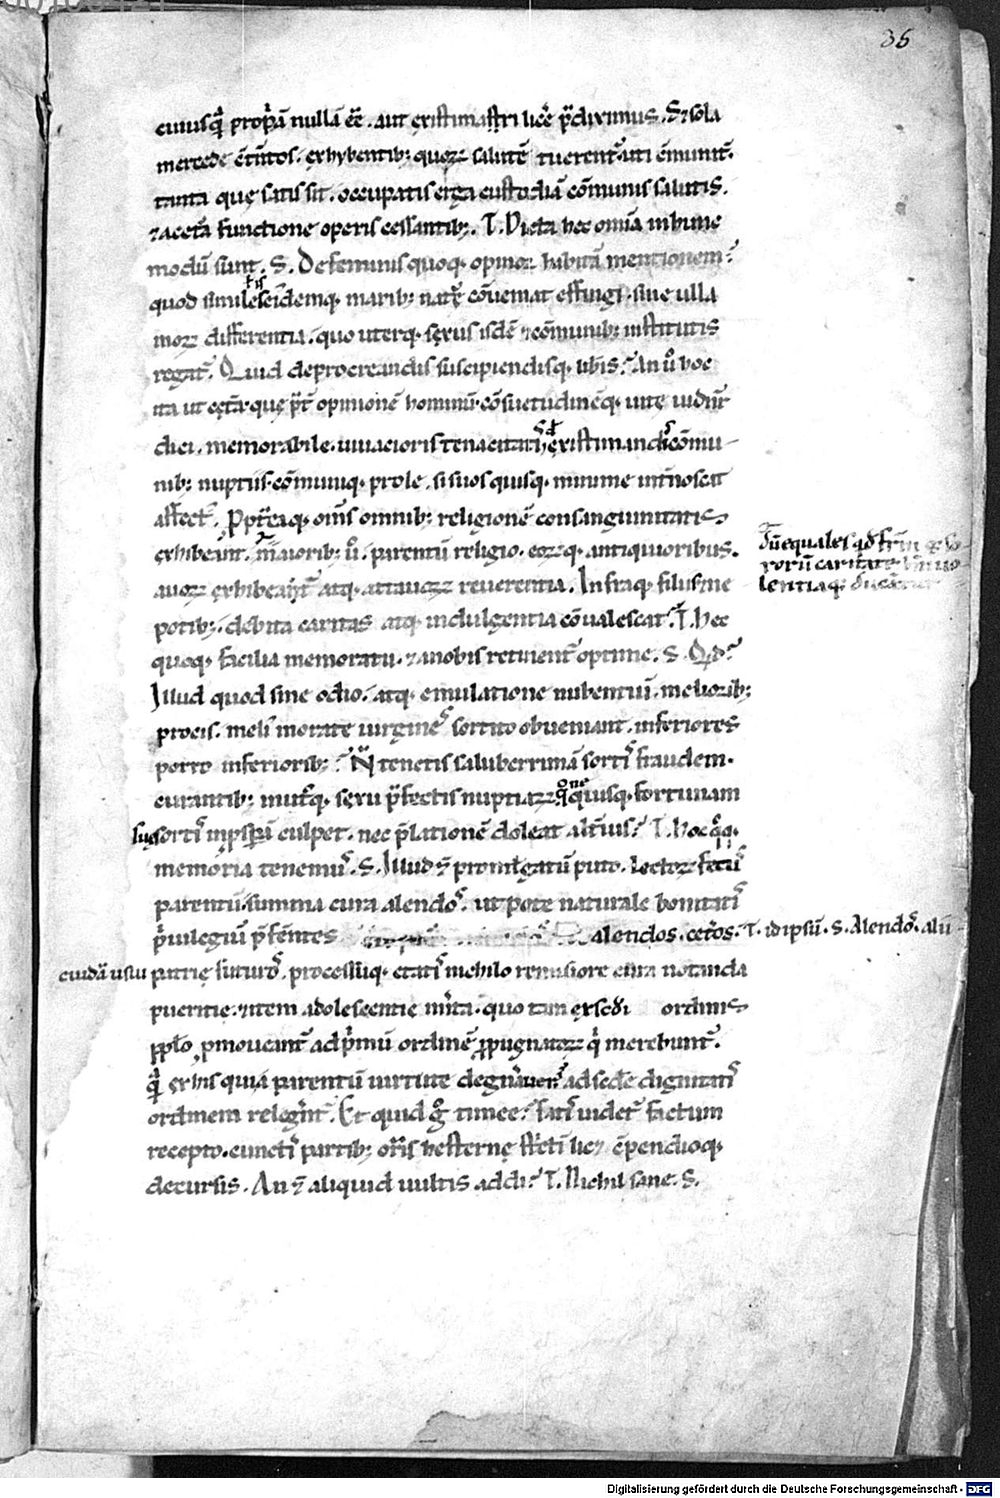 35
cuiusq̄ propͥā nullā eē. aut existimasti licē p̄diximus. S. sola
mercede cōtētos. exhybentib; quoꝝ salutē tuerent̄. uti ēmunit̄.
tanta quę satis sit. occupatis erga custodiā cōmunis salutis.
⁊ a cetā functione operis cessantib;. T. Dicta hec omīa in hunc
modū sunt. S. De feminis quoq. opinoꝛ habitā mentionem.
quod similes eisdemq. marib; natę̄ cōueniat effingi. siue ulla
moꝝ differentia. quo uterq. sexus isdē ⁊ cōmunib; institutis
regat̄. Quid de procreandis suscipiendisq. lib̄is? An ū hoc
ita ut cętā. quę p̄t opinionē hominū. cōsuetudinēq. uite uidn̄t
dici. memorabile. uiuacioris tenacitatis ē existimandū cōmu-
nib; nuptiis. cōmuniq. prole. si suos quisq. minime int̄noscat
affect. Propt̄eaq. om̄s omnib; religionē consanguinitatis
exhibeant. maiorib; ū. parentū religio. eoꝝq. antiquioribus.
auoꝝ exhibeat̄ atq. attauoꝝ reuerentia. Infraq. filiis ne
potib;. debita caritas atq. indulgentia cōualescat. T. Hec
quoq. facilia memoratu. ⁊ a nobis retinent̄ optime. S. Qd̄.
Illud quod sine odio. atq. emulatione nubentiū. melioꝛib;
procis. meli morate uirgines sortito obueniant. inferiores
porro inferiorib;. N̄ tenetis saluberrimā sortis fraudem.
curantib; in ut̄q. sexu p̄fectis nuptiaꝝ. quo quisq. fortunam
suę sortis in p̄sp̄ū culpet. nec p̄lationē doleat alt̄ius? T. Hoc q̄q.
memoria tenemus. S. Illud ⁊ promulgatū puto. lectoꝝ fetus
parentū summa cura alendos. ut pote naturale bonitatis
p̄uilegiū p̄ferentes alendos. cet̄os. T. id ipsū. S. Alendos. alū
cuidā usui patrię futuros. processuq. etatis nichilo remisiore cura notanda
pueritie. ⁊ item adolescentie m̄ita. quo tam ex secd̄i ordinis
pp̄lo. pmoueant̄ ad p̄mū ordinē ppugnatoꝝ q̄ merebunt̄.
q̄ ex his quia parentū uirtute degn̄auer̄ ad sed̄e dignitatis
ordinem relegent̄. Et quid ḡ timee? Satis uidet̄ factum
recepto. cunctis partib; om̄s hesternę ... lic⁊ cōpendioq.
decursis. An ⁊ aliquid uultis addi? T. Nichil sane. S.
Dū equales qd̄ frm̄ ⁊ so-
rorū caritate beniuo-
lentiaq. ducant̄
Digitalisierung gefördert durch die Deutsche Forschungsgemeinschaft - DFG